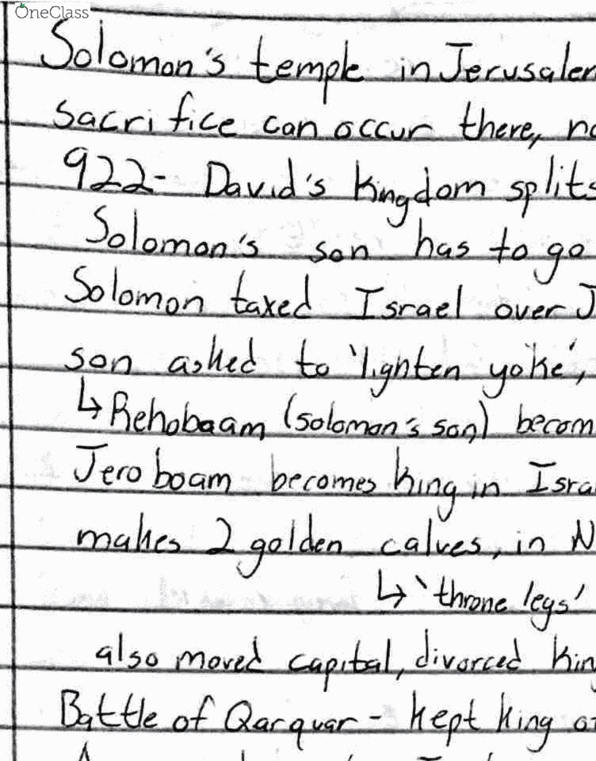 OneClass
Solomon's temple in Jerusalem
sacrifice can occur there, no
922 - David's kingdom splits
Solomon's son has to go
Solomon taxed Israel over J
son asked to 'lighten yoke',
↳ Rehobaam (solomon's son) becom
Jeroboam becomes king in Isra
makes 2 golden calves, in N
↳ 'throne legs'
also moved capital, divorced kin
Battle of Qarquar - kept king of